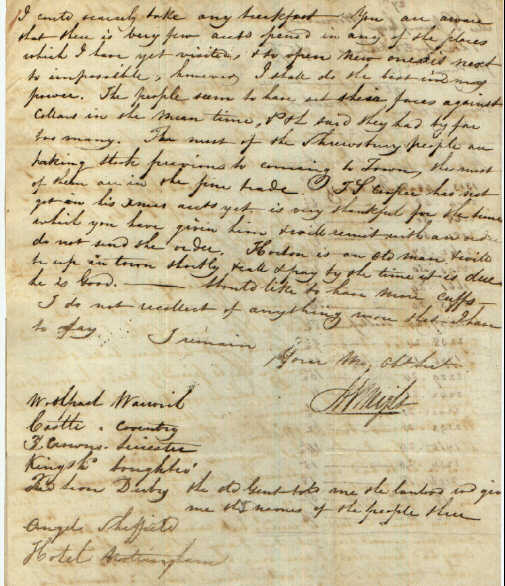 I could scarcely take any breakfast — You are aware
that there is very few accts opend in any of the places
which I have yet visited, & to open New ones is next
to impossible, however I shall do the best in my
power. The people seem to have set their faces against
Collars in the mean time, & Sh said they had by far
too many. The most of the Shrewsbury people are
taking stock previous to coming to Town, the most
of them are in the fine trade J S Cooper has not
got in his Xmas accts yet is very thankful for the time
which you have given him & will remit with an order
do not send the order. is an old man & will
be up in town shortly & call & pay by the time it is due
he is Good. — Should like to have more cuffs
I do not recollect of anything more that I have
to say. I remain
Your Mo, Obt
Warwick
Castle . Coventry
Leicester
Kings
Lion Derby the old Gent told me the landlord wd give
me the names of the people there
Angel Sheffield
Hotel Nottingham